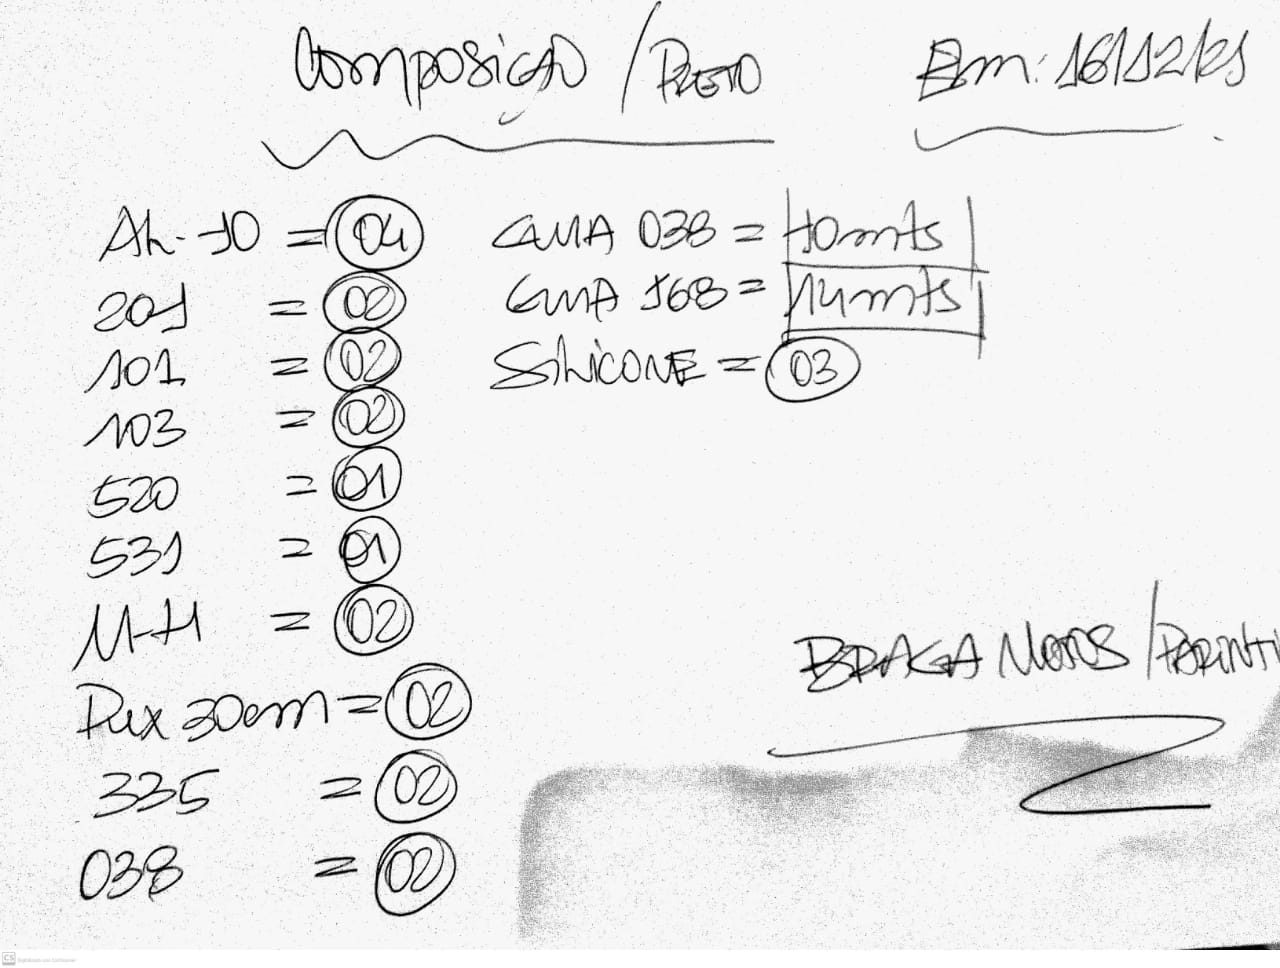 Composição / PRETO
Em: 16/12/21
AL-10 = 04
201 = 02
101 = 02
103 = 02
520 = 01
531 = 01
M-H = 02
Pux 30cm = 02
335 = 02
038 = 02
GUIA 038 = 10mts
GUIA 168 = 14mts
SiliCONE = 03
BRAGA MOTOS / PARINTI
CS Digitalizado com CamScanner